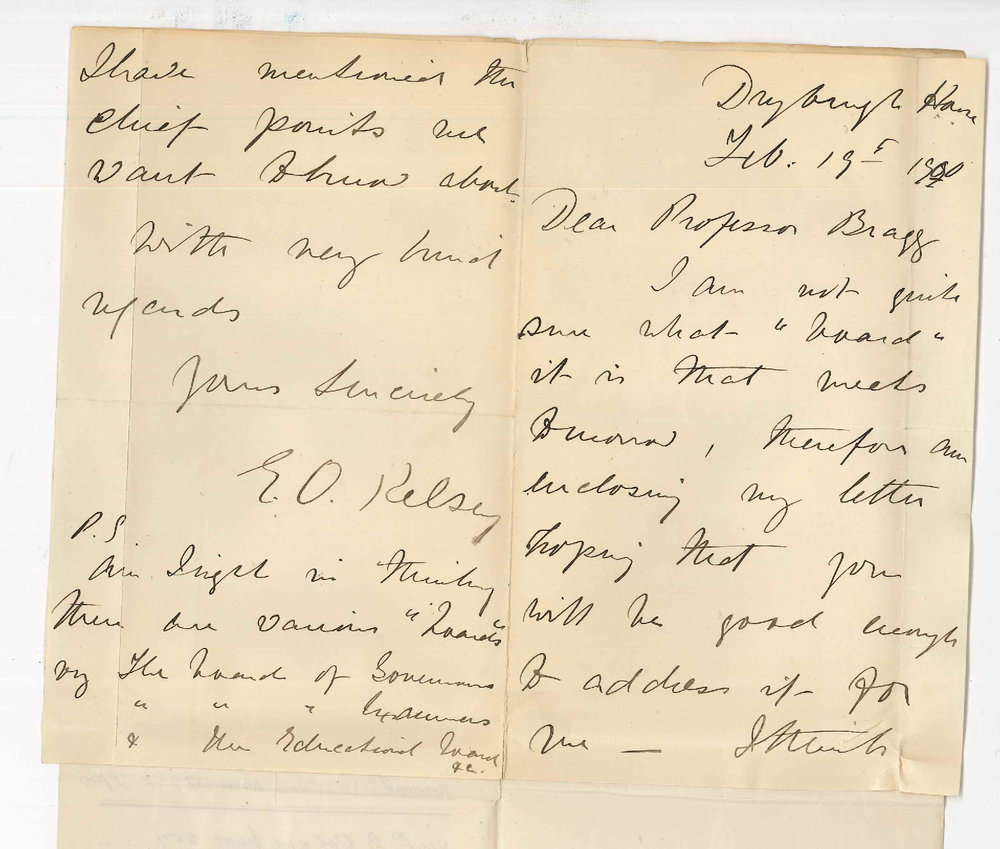 Dryburgh House
Feb. 19th 1900
Dear Professor Bragg
I am not quite
sure what "board"
it is that meets
tomorrow, therefore am
enclosing my letter
hoping that you
will be good enough
to address it for
me — I think
I have mentioned the
chief points we
want to know about.
With very kind
regards
Yours sincerely
E. O. Kelsey
P.S
Am I right in thinking
there are various "boards"
viz The board of Governors
" " " Examiners
& the Educational board
&c.